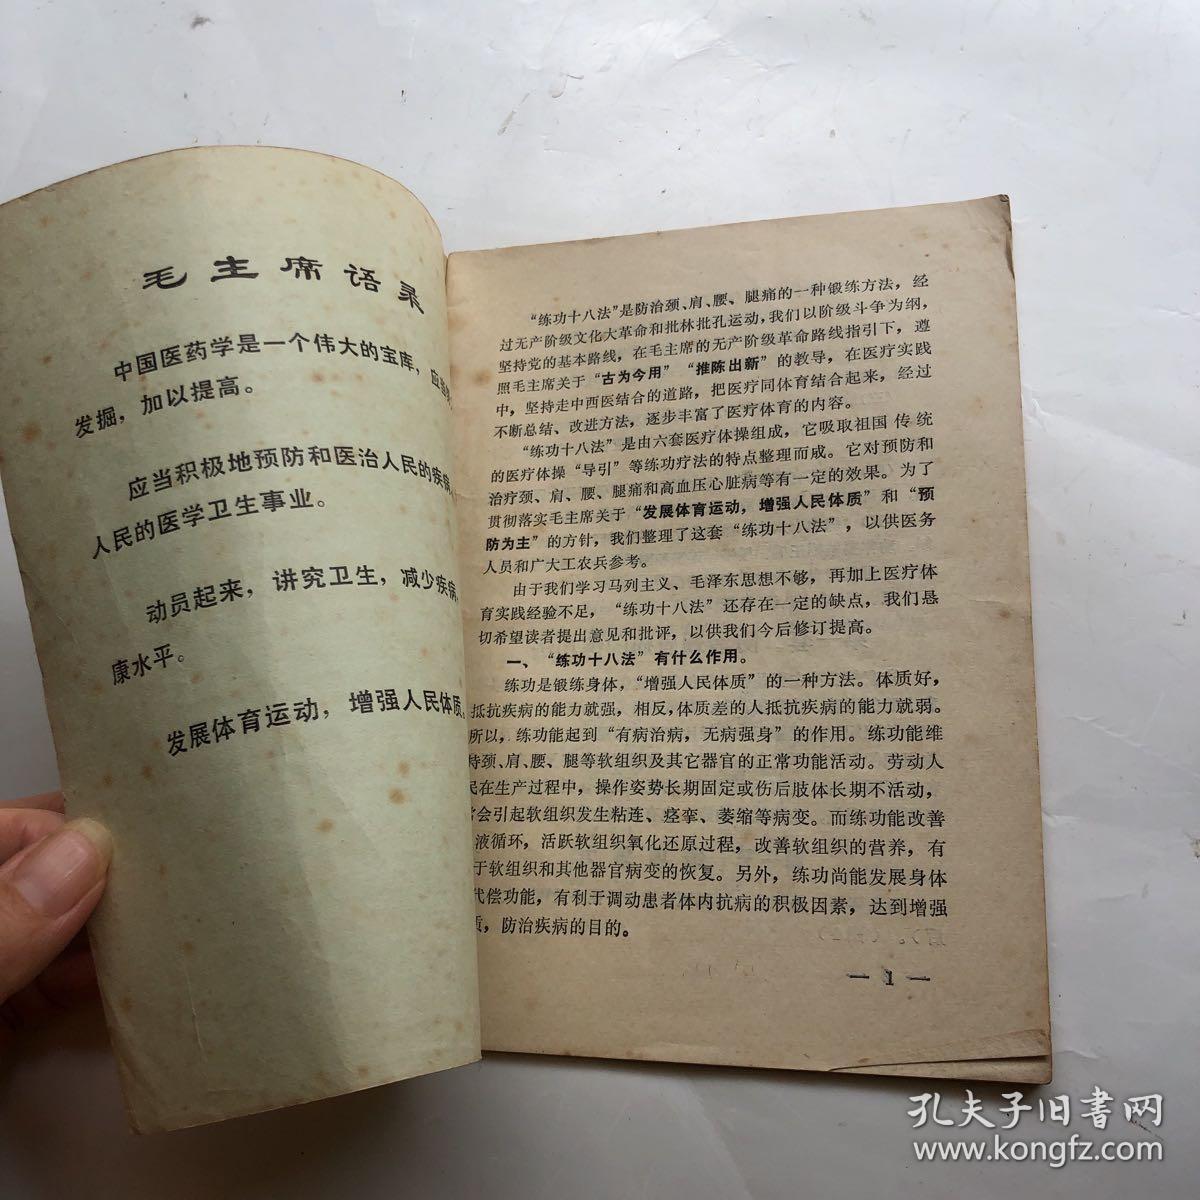 毛主席语录
中国医药学是一个伟大的宝库，应当
发掘，加以提高。
应当积极地预防和医治人民的疾病
人民的医学卫生事业。
动员起来，讲究卫生，减少疾病，
康水平。
发展体育运动，增强人民体质。
“练功十八法”是防治颈、肩、腰、腿痛的一种锻练方法，经
过无产阶级文化大革命和批林批孔运动，我们以阶级斗争为纲，
坚持党的基本路线，在毛主席的无产阶级革命路线指引下，遵
照毛主席关于“古为今用”“推陈出新”的教导，在医疗实践
中，坚持走中西医结合的道路，把医疗同体育结合起来，经过
不断总结、改进方法，逐步丰富了医疗体育的内容。
“练功十八法”是由六套医疗体操组成，它吸取祖国传统
的医疗体操“导引”等练功疗法的特点整理而成。它对预防和
治疗颈、肩、腰、腿痛和高血压心脏病等有一定的效果。为了
贯彻落实毛主席关于“发展体育运动，增强人民体质”和“预
防为主”的方针，我们整理了这套“练功十八法”，以供医务
人员和广大工农兵参考。
由于我们学习马列主义、毛泽东思想不够，再加上医疗体
育实践经验不足，“练功十八法”还存在一定的缺点，我们恳
切希望读者提出意见和批评，以供我们今后修订提高。
一、“练功十八法”有什么作用。
练功是锻练身体，“增强人民体质”的一种方法。体质好，
抵抗疾病的能力就强，相反，体质差的人抵抗疾病的能力就弱。
所以，练功能起到“有病治病，无病强身”的作用。练功能维
持颈、肩、腰、腿等软组织及其它器官的正常功能活动。劳动人
民在生产过程中，操作姿势长期固定或伤后肢体长期不活动，
常会引起软组织发生粘连、痉挛、萎缩等病变。而练功能改善
液循环，活跃软组织氧化还原过程，改善软组织的营养，有
于软组织和其他器官病变的恢复。另外，练功尚能发展身体
代偿功能，有利于调动患者体内抗病的积极因素，达到增强
质，防治疾病的目的。
— 1 —
孔夫子旧书网
www.kongfz.com